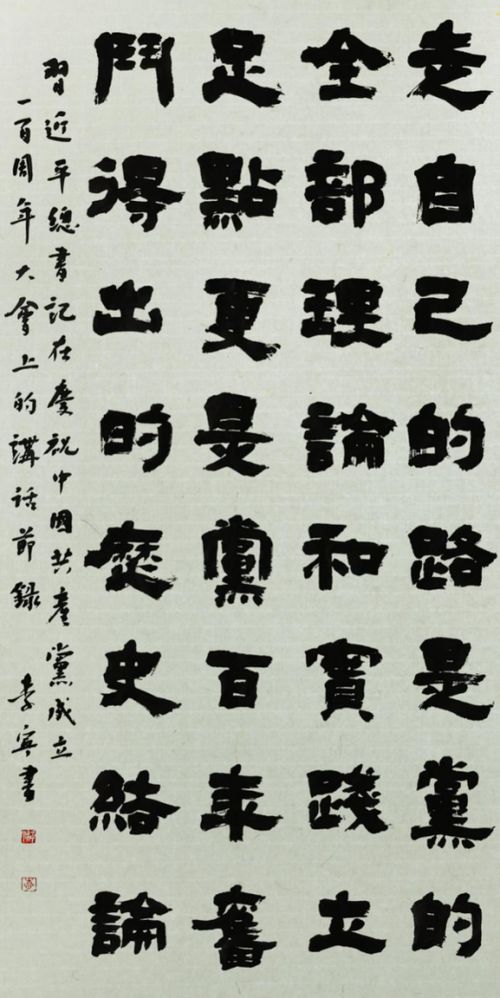 走自己的路是黨的
全部理論和實踐立
足點更是黨百年奮
鬥得出的歷史結論
習近平總書記在慶祝中國共產黨成立
一百周年大會上的講話節錄 李寧書